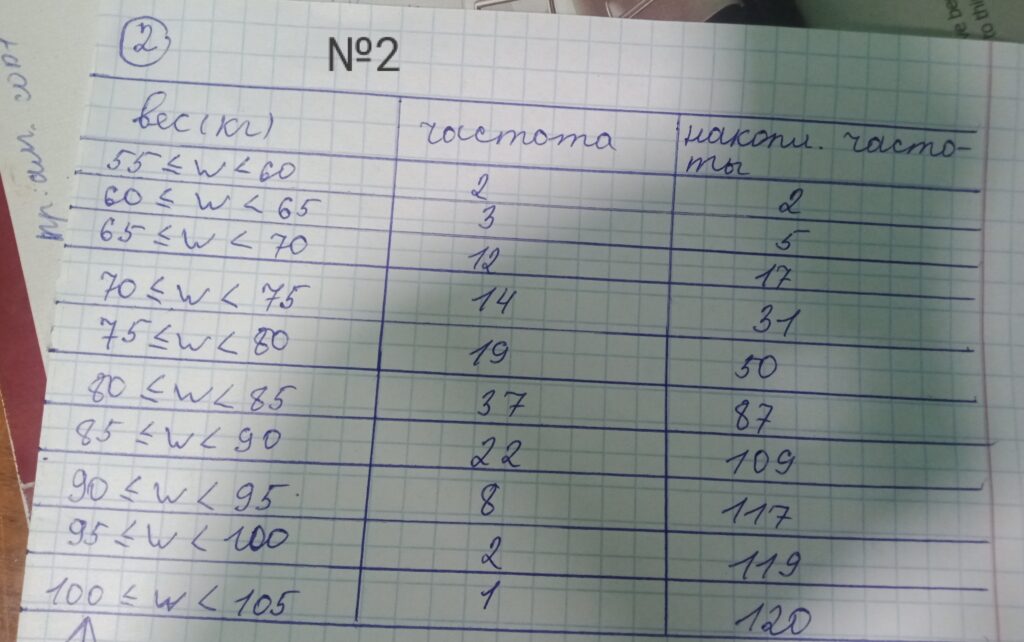 2
№2
вес (кг) частота накопл. часто-
ты
55 ≤ w < 60 2 2
60 ≤ w < 65 3 5
65 ≤ w < 70 12 17
70 ≤ w < 75 14 31
75 ≤ w < 80 19 50
80 ≤ w < 85 37 87
85 ≤ w < 90 22 109
90 ≤ w < 95 8 117
95 ≤ w < 100 2 119
100 ≤ w < 105 1 120